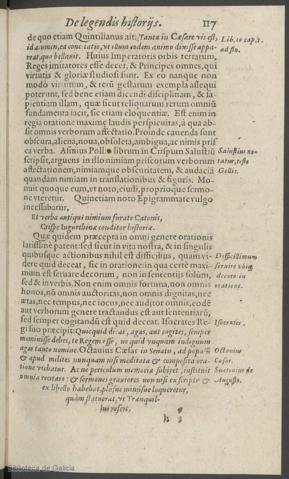 De legendis historijs. 117
de quo etiam Quintilianus ait: Tanta in Cæsare vis est,
id acumen, ea concitatio, vt illum eodem animo dixisse appa-
reat, quo bellauit. Huius Imperatoris orbis terrarum,
Reges imitatores esse decet, & Principes omnes, qui
virtutis & gloriæ studiosi sunt. Ex eo nanque non
modò virtutum, & rerũ gestarum exempla assequi
poterunt, sed bene etiam dicendi disciplinam, & sa-
pientiam illam, quæ sicut reliquarum rerum omniũ
fundamenta iacit, sic etiam eloquentiæ. Est enim in
regia oratione maximè laudi perspicuitas, à qua ab-
sit omnis verborum affectatio. Proinde cauenda sunt
obscura, aliena, noua, obsoleta, ambigua, ac nimis pris
ca verba. Asinius Pollio librum in Crispum Salustiũ
scripsit, arguens in illo nimiam priscorum verborum
affectationem, nimiamque obscuritatem, & audaciã
quandam nimiam in translationibus & figuris. Mo-
nuit quoque eum, vt noto, ciuili, proprioque sermo-
ne vteretur. Quin etiam noto Epigrammate vulgo
incessibatur,
Et verba antiqui nimium furate Catonis,
Crispe Iugurthinæ conditor historiæ.
Quæ quidem præcepta in omni genere orationis
latissimè patent: sed sicut in vita nostra, & in singulis
quibusque actionibus nihil est difficilius, quam vi-
dere quid deceat, sic in oratione in qua certè maxi-
mum est seruare decorum, non in sententijs solùm,
sed & in verbis. Non enim omnis fortuna, non omnis
honos, nõ omnis auctoritas, non omnis dignitas, nec
ætas, nec tempus, nec locus, nec auditor omnis, eodẽ
aut verborum genere tractandus est aut sententiarũ,
sed semper cogitandũ est quid deceat. Isocrates Re-
gi suo præcipit: Quicquid dicas, agas, aut cogites, semper
memineris debes, te Regem esse, ne quid vnquam indignum
agas tanto nomine. Octauius Cæsar in Senatu, ad populũ
& apud milites nunquam nisi meditata & composita ora-
tione vtebatur. Ac ne periculum memoriæ subiret, instituit
omnia recitare: & sermones grauiores non nisi ex scripto &
ex libello habebat, plus ne minusue loqueretur,
quàm statuerat, vt Tranquil-
lus refert.
h 3
Lib. 10. cap. 1.
ad fin.
Salustius no-
tatur, teste
Gellio.
Difficillimum
seruare vbiq;
decoro in
oratione.
Isocrates.
Octauius
Cæsar.
Suetonius in
Augusto.
Biblioteca de Galicia